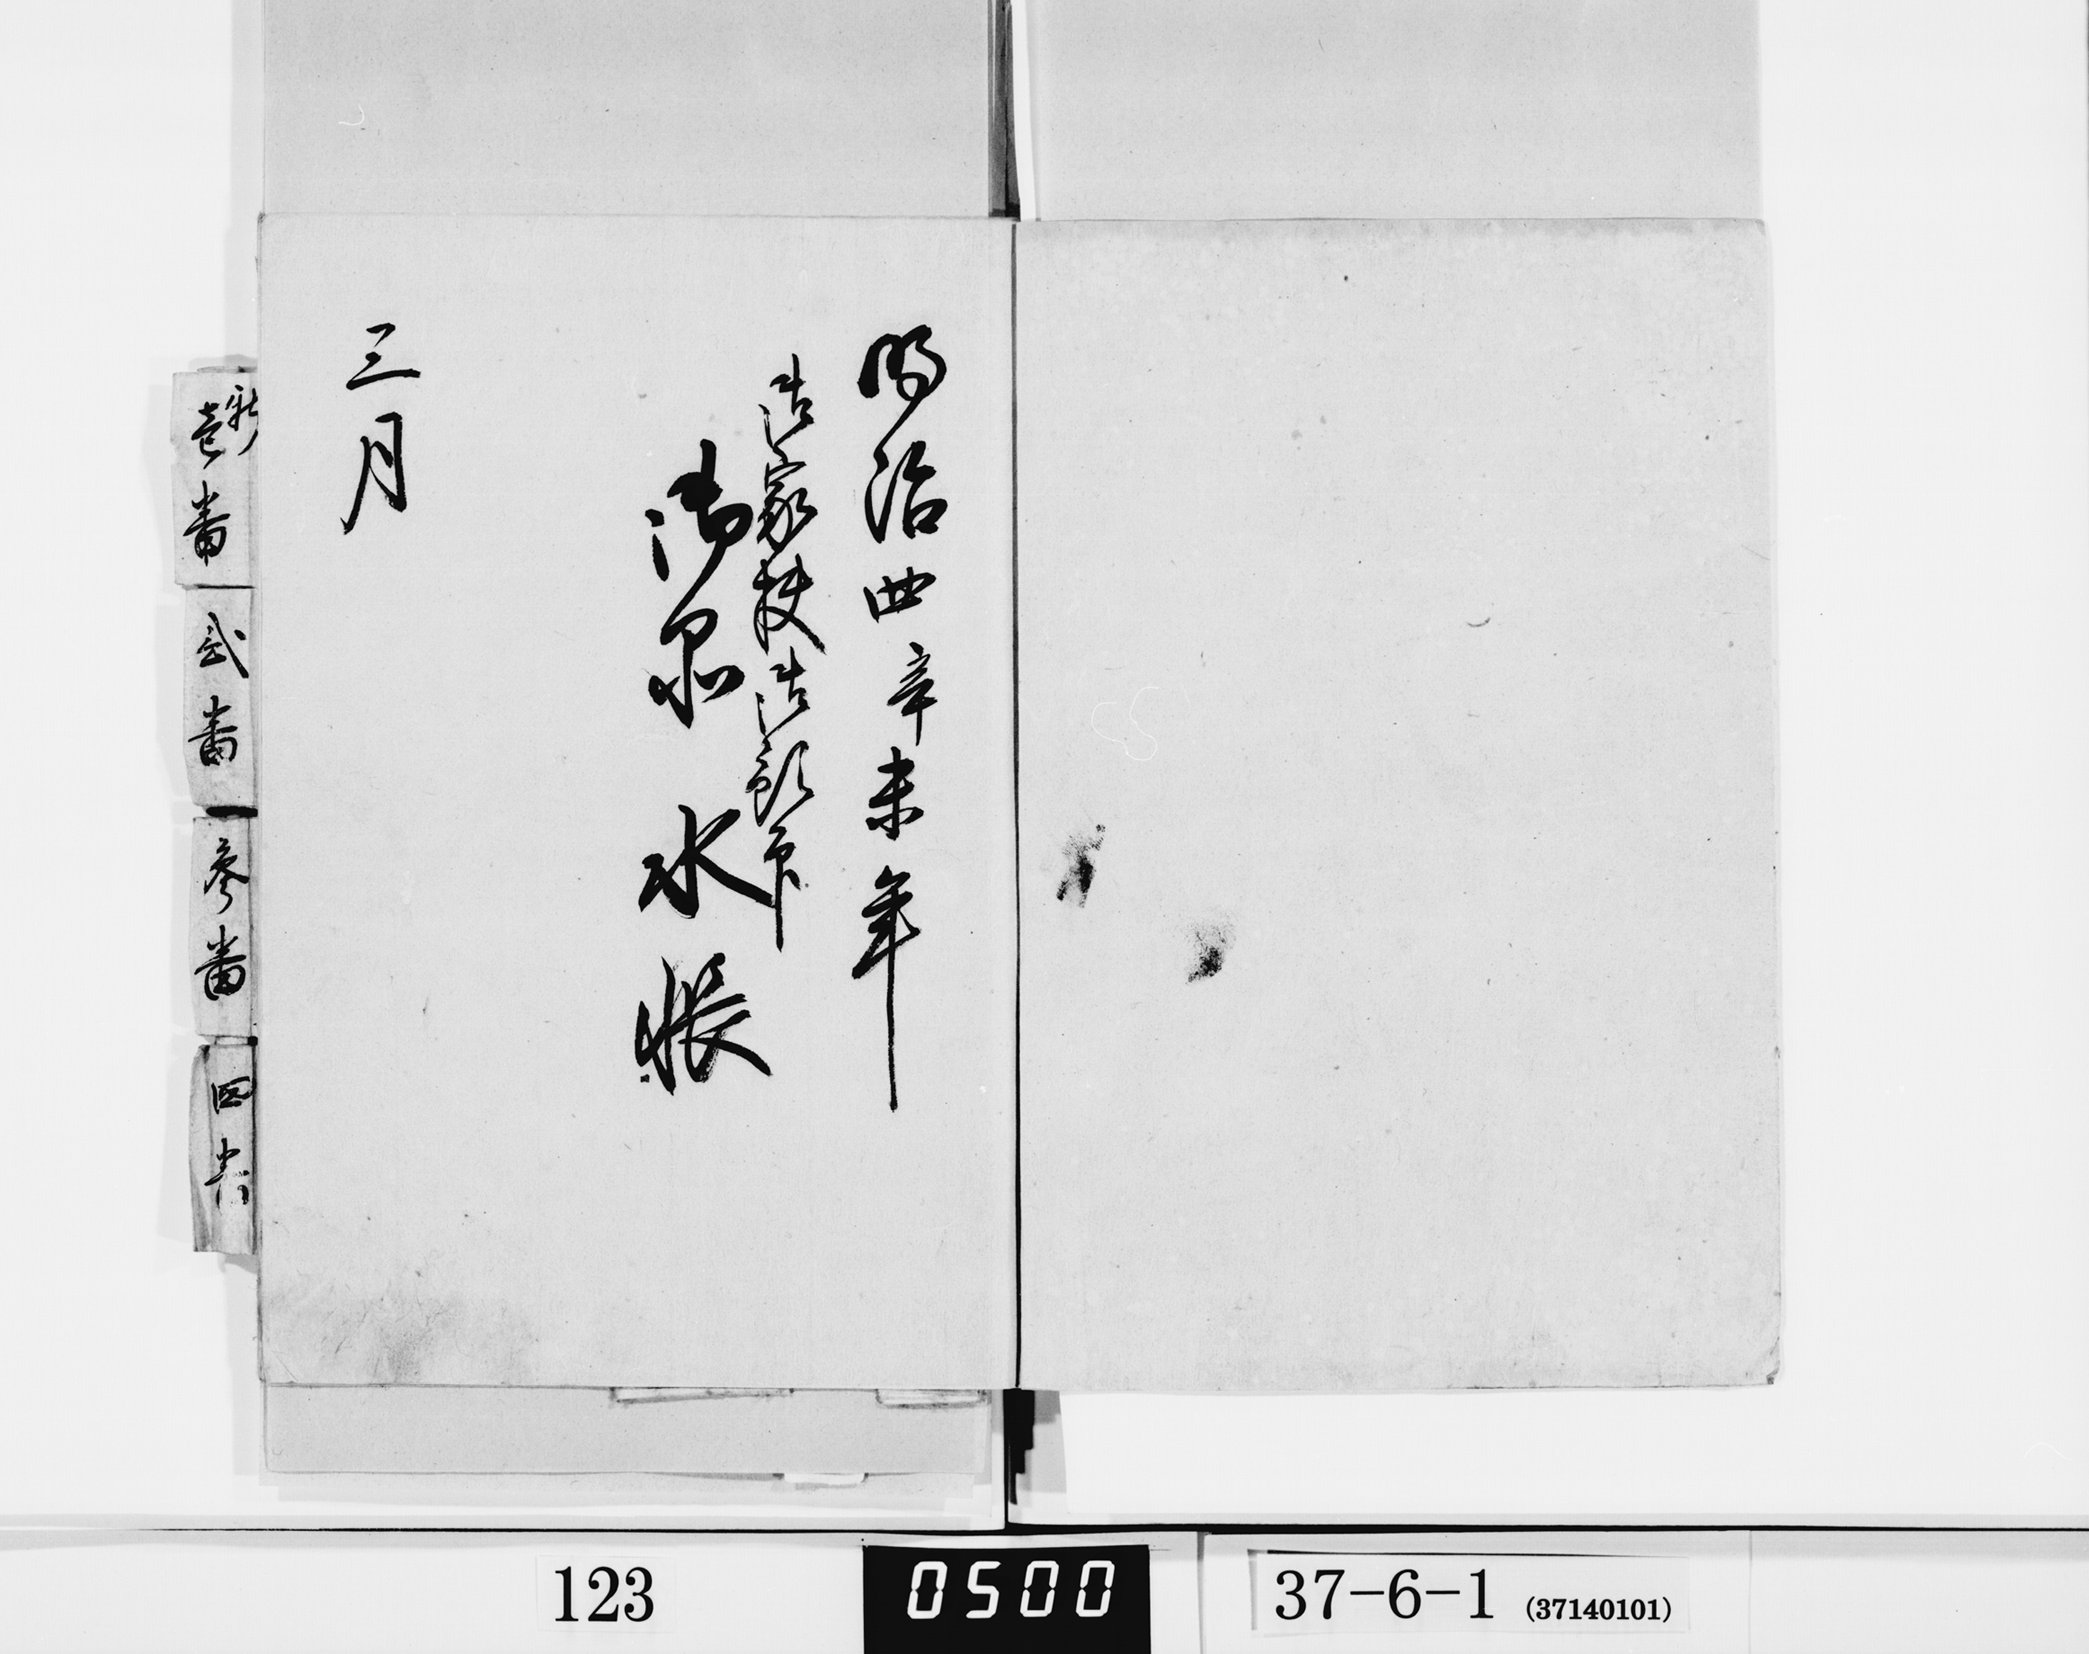 明治四辛未年
家
御 水帳
三月
新
壱番
弐番
参番
四番
123
0500
37-6-1 (37140101)